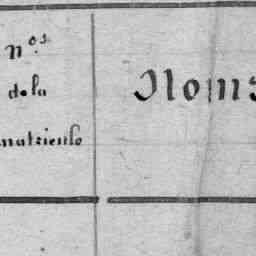 N.os
de la
matricule
Noms